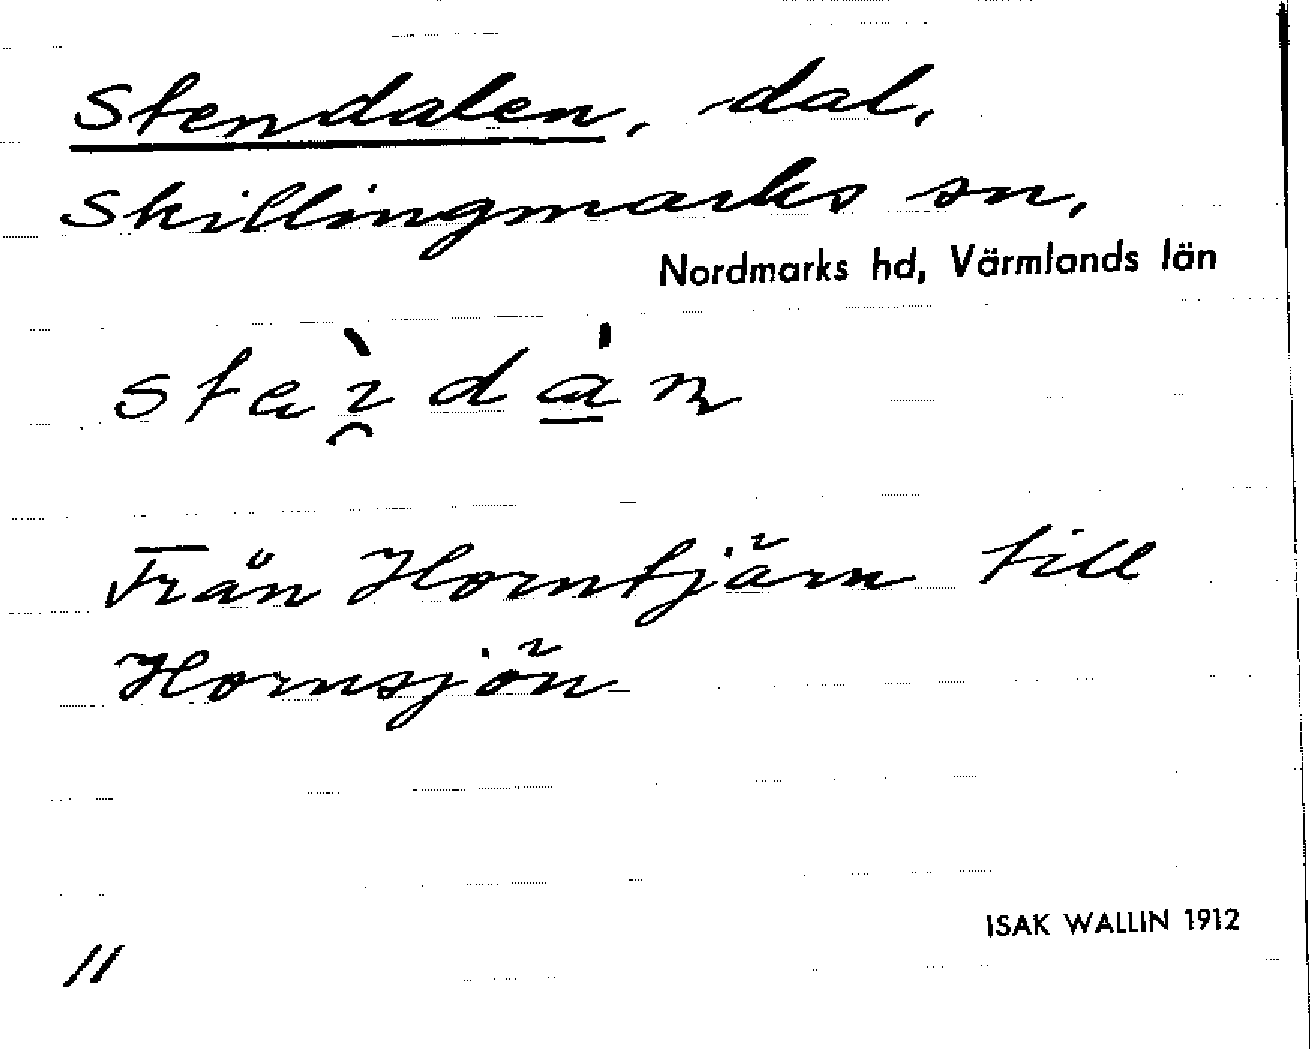 Stendalen, dal,
Skillingmarks sn,
Nordmarks hd, Värmlands län
Från Horntjärn till
Hornsjön
ISAK WALLIN 1912
11